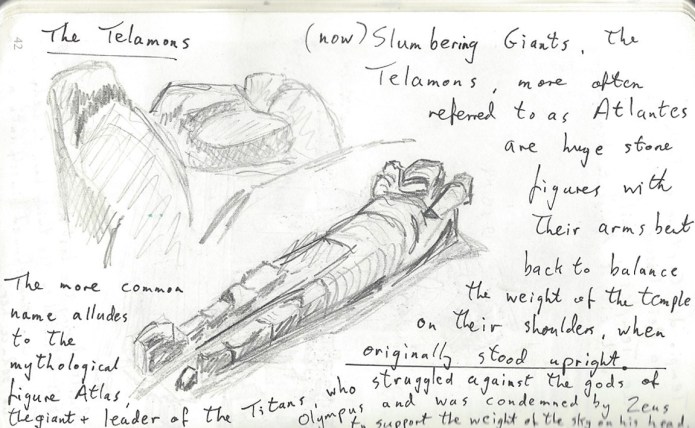 42
The Telamons
(now) Slumbering Giants, the
Telamons, more often
referred to as Atlantes
are huge stone
figures with
their arms bent
back to balance
the weight of the temple
on their shoulders, when
originally stood upright.
The more common
name alludes
to the
mythological
figure Atlas,
the giant + leader of the Titans, who struggled against the gods of
Olympus and was condemned by Zeus
to support the weight of the sky on his head.